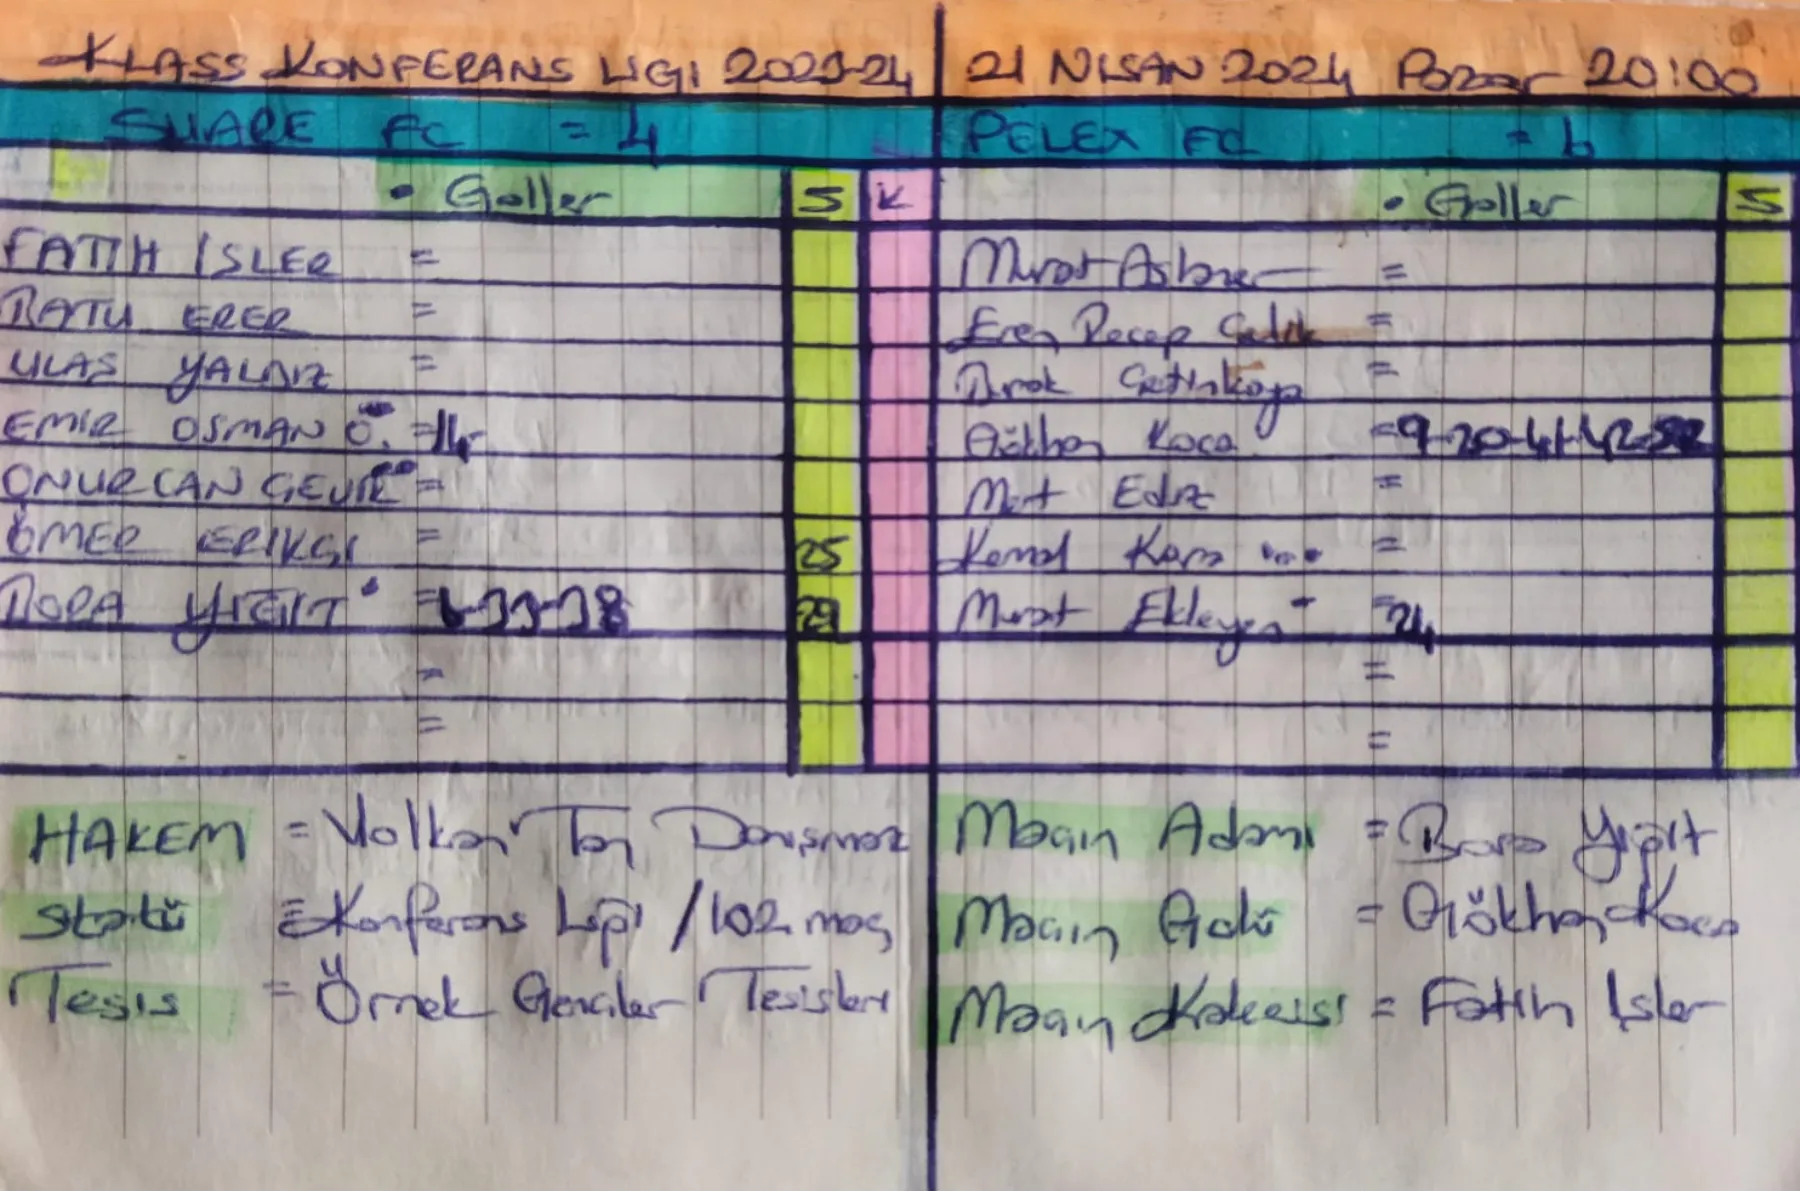 KLASS KONFERANS LİGİ 2023-24
21 NISAN 2024 Pazar 20:00
SHARE FC = 4
PELEX FC = 6
• Goller S K
• Goller S
FATIH ISLER =
Murat =
BATU ERER =
Eren Recep Çelik =
ULAS YALNIZ =
Burak Çetinkaya =
EMIR OSMAN Ö. = 14
Gökhan Koca = 9-20-41-42-52
ONURCAN =
Mert Ediz =
ÖMER ERIKÇI = 25
Kemal Kara =
BORA YIGIT = 6-33-38 29
Murat Ekleyen = 24
=
=
=
=
HAKEM = Volkan Tan Danışmaz
Maçın Adamı = Bora Yiğit
Statü = Konferans Ligi / 102. maç
Maçın Golü = Gökhan Koca
Tesis = Örnek Gençler Tesisleri
Maçın Kalecisi = Fatih İşler